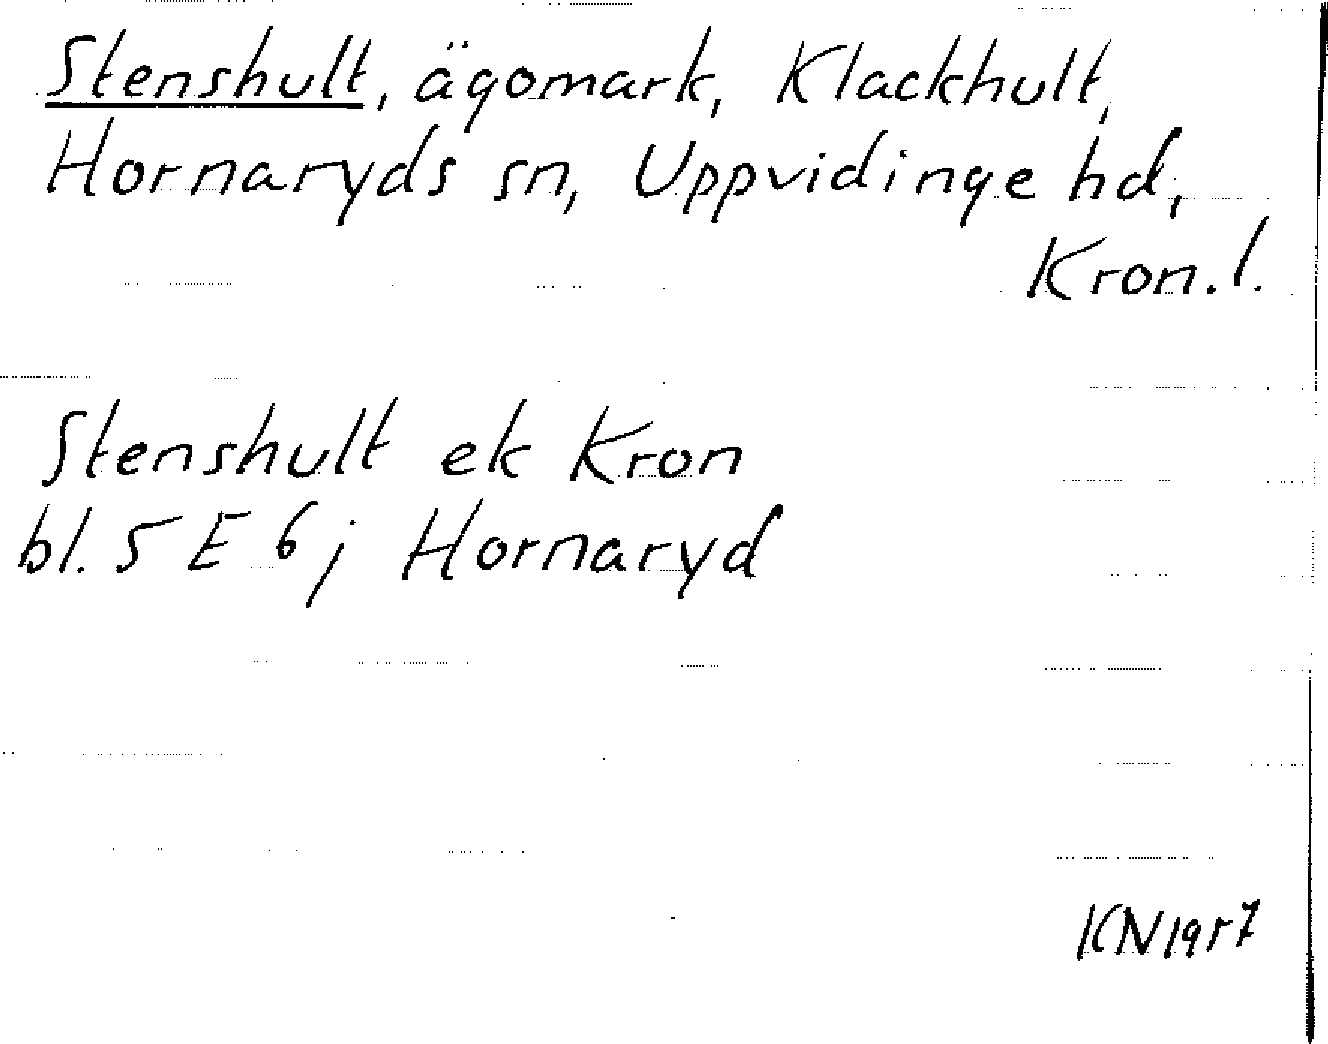 Stenshult, ägomark, Klackhult,
Hornaryds sn, Uppvidinge hd,
Kron. l.
Stenshult ek Kron
bl. 5 E 6 j Hornaryd
KN 1957